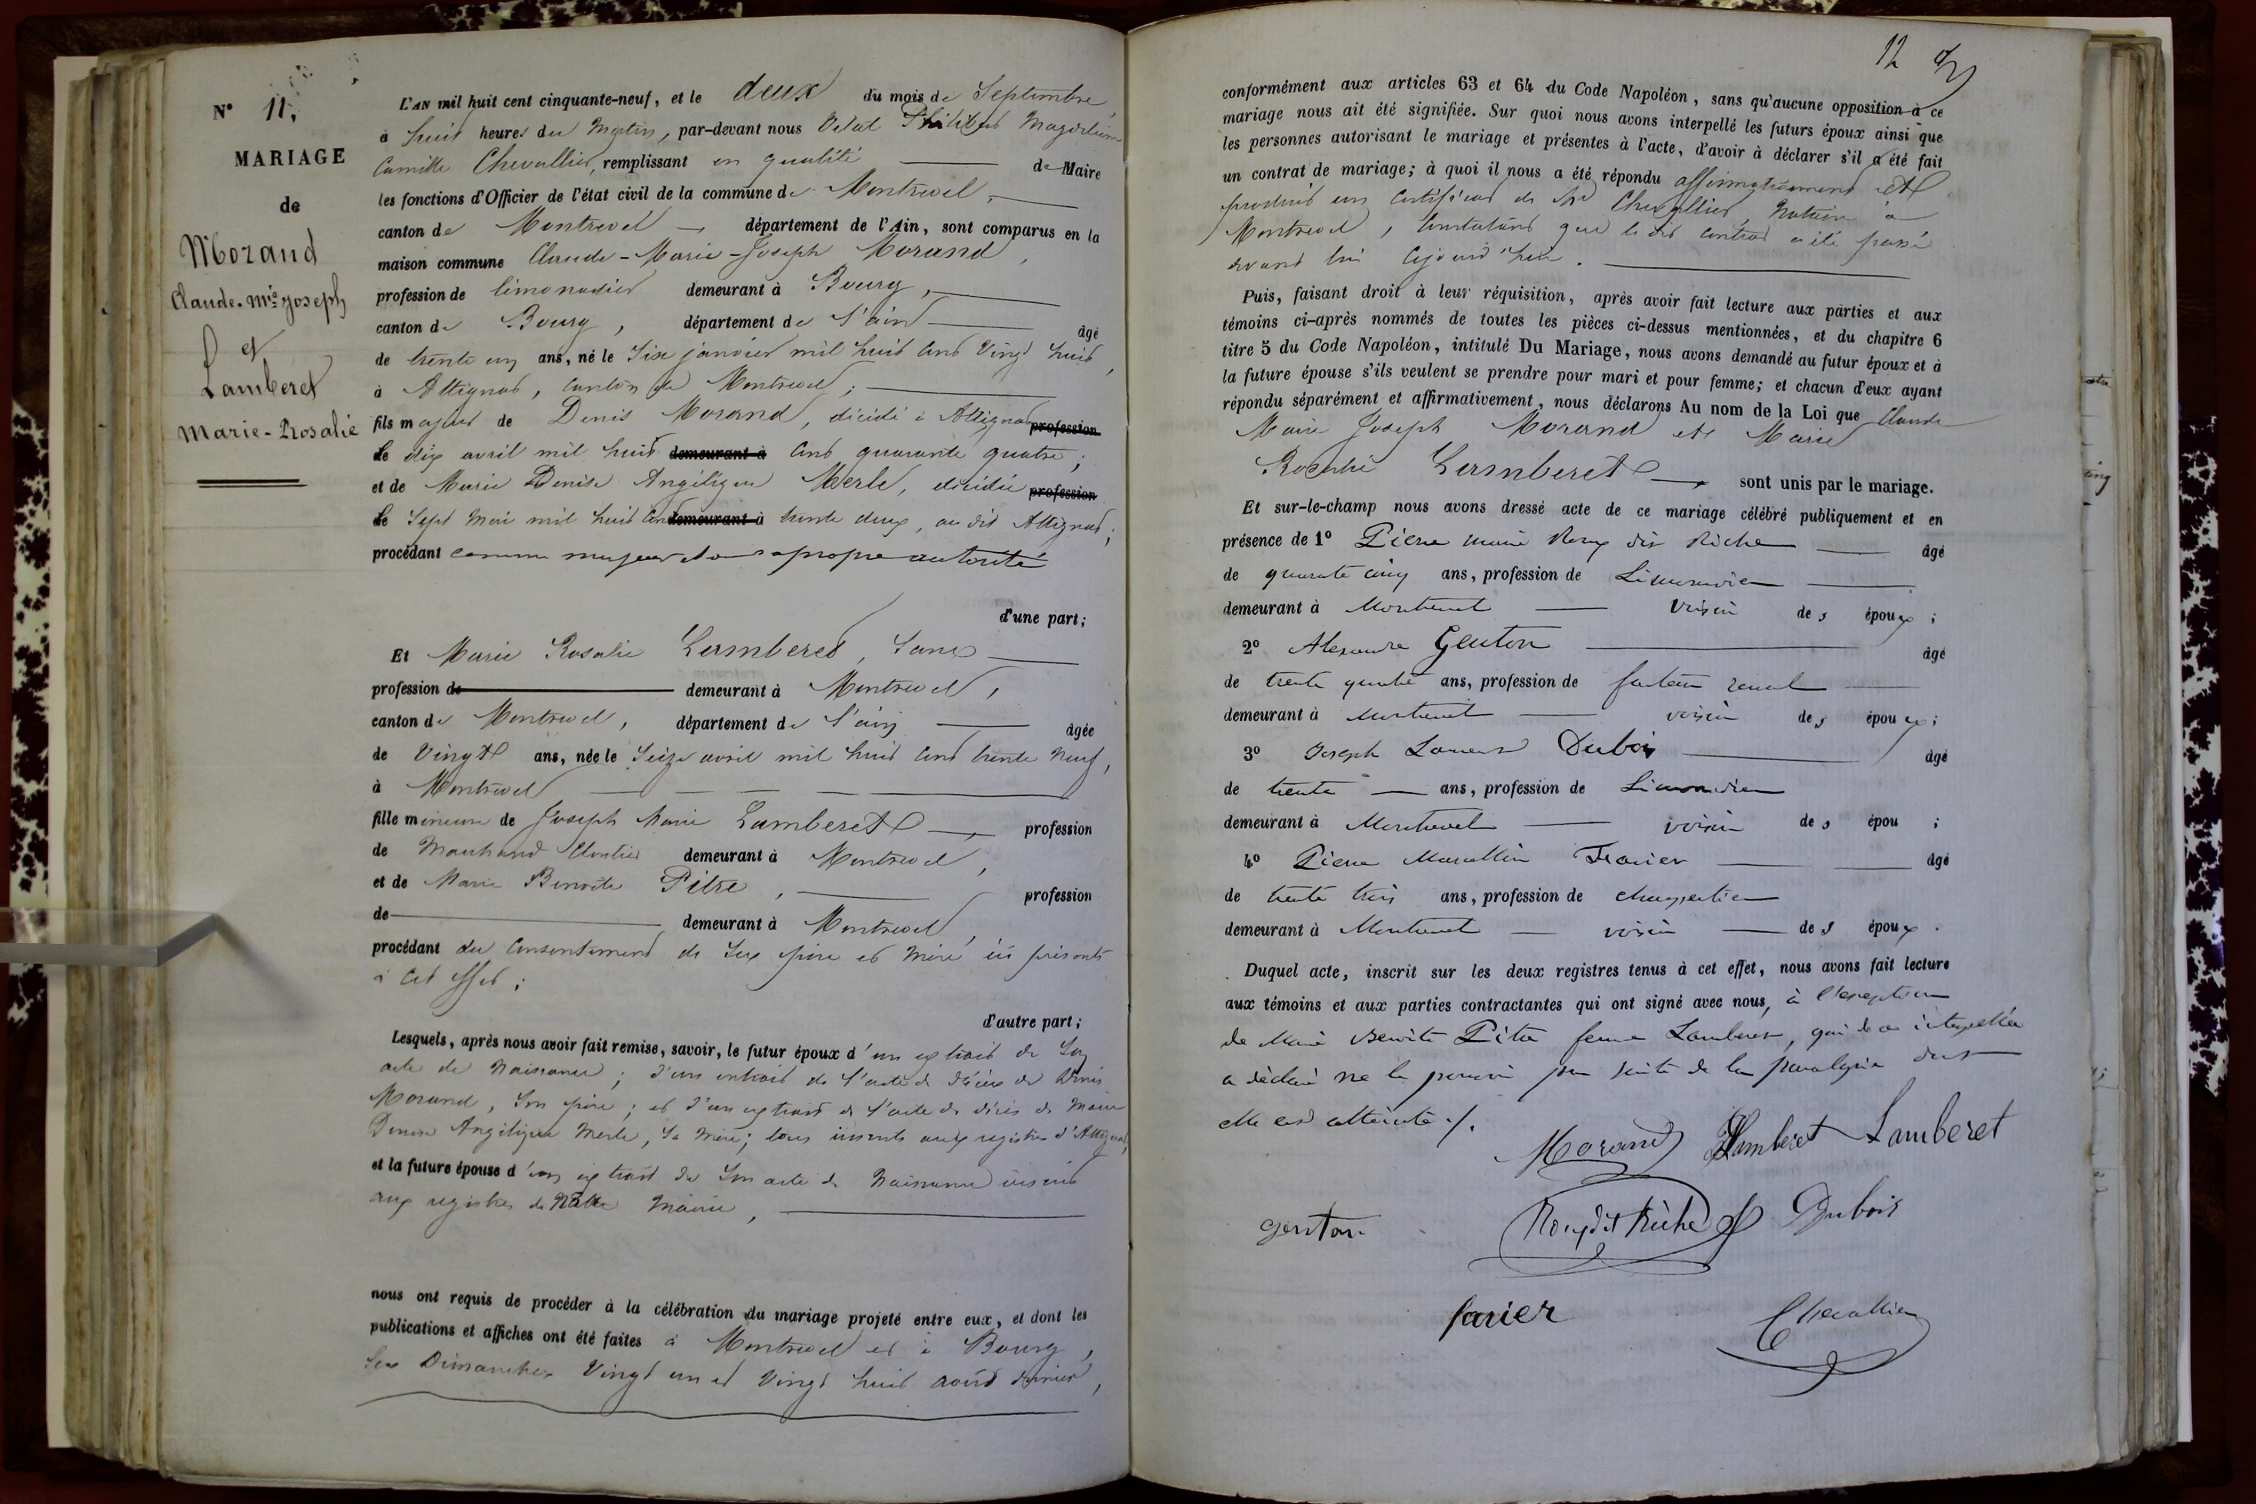 N° 11.
MARIAGE
de
Morand
Claude-Mie Joseph
et
Lamberet
Marie-Rosalie
L'AN mil huit cent cinquante-neuf, et le deux du mois de Septembre
à huit heures du Matin, par-devant nous Philibert
Camille Chevallier, remplissant en qualité de Maire
les fonctions d'Officier de l'état civil de la commune de Montrevel,
canton de Montrevel, département de l'Ain, sont comparus en la
maison commune Claude-Marie-Joseph Morand,
profession de limonadier demeurant à Bourg,
canton de Bourg, département de l'ain âgé
de trente un ans, né le Six janvier mil huit Cent Vingt huit,
à Attignat, canton de Montrevel;
fils majeur de Denis Morand, décédé à Attignat profession
le dix avril mil huit demeurant à Cent quarante quatre;
et de Marie Denise Angélique Merle, décédée profession
le Sept Mai mil huit Cent demeurant à trente deux, au dit Attignat;
procédant comme majeur et de sa propre autorité
d'une part;
Et Marie Rosalie Lamberet, Sans
profession de demeurant à Montrevel,
canton de Montrevel, département de l'ain âgée
de Vingt ans, née le Seize avril mil huit Cent trente Neuf,
à Montrevel
fille mineure de Joseph Marie Lamberet, profession
de Marchand demeurant à Montrevel,
et de Marie Benoite Pitre, profession
de demeurant à Montrevel,
procédant du Consentement de Ses père et Mère ici présents
à Cet effet;
d'autre part;
Lesquels, après nous avoir fait remise, savoir, le futur époux d'un extrait de Son
acte de Naissance; d'un extrait de l'acte de décès de Denis
Morand, Son père; et d'un extrait de l'acte de décès de Marie
Denise Angélique Merle, Sa Mère; tous inscrits aux registres d'Attignat,
et la future épouse d'un extrait de Son acte de Naissance inscrit
aux registres de Notre Mairie,
nous ont requis de procéder à la célébration du mariage projeté entre eux, et dont les
publications et affiches ont été faites à Montrevel et à Bourg,
les Dimanches Vingt un et Vingt huit août dernier,
12
conformément aux articles 63 et 64 du Code Napoléon, sans qu'aucune opposition à ce
mariage nous ait été signifiée. Sur quoi nous avons interpellé les futurs époux ainsi que
les personnes autorisant le mariage et présentes à l'acte, d'avoir à déclarer s'il a été fait
un contrat de mariage; à quoi il nous a été répondu affirmativement et
produit un Certificat de Me Chevallier, Notaire à
Montrevel, Constatant que le dit Contrat a été passé
devant lui
Puis, faisant droit à leur réquisition, après avoir fait lecture aux parties et aux
témoins ci-après nommés de toutes les pièces ci-dessus mentionnées, et du chapitre 6
titre 5 du Code Napoléon, intitulé Du Mariage, nous avons demandé au futur époux et à
la future épouse s'ils veulent se prendre pour mari et pour femme; et chacun d'eux ayant
répondu séparément et affirmativement, nous déclarons Au nom de la Loi que Claude
Marie Joseph Morand et Marie
Rosalie Lamberet, sont unis par le mariage.
Et sur-le-champ nous avons dressé acte de ce mariage célébré publiquement et en
présence de 1° Pierre Marie Roux dit Riche âgé
de quarante cinq ans, profession de Limonadier
demeurant à Montrevel voisin des époux;
2° Alexandre Genton âgé
de trente quatre ans, profession de facteur rural
demeurant à Montrevel voisin des époux;
3° Joseph Laurent Dubois âgé
de trente ans, profession de Limonadier
demeurant à Montrevel voisin des épou;
4° Pierre Marcellin Favier âgé
de trente trois ans, profession de charpentier
demeurant à Montrevel voisin des époux.
Duquel acte, inscrit sur les deux registres tenus à cet effet, nous avons fait lecture
aux témoins et aux parties contractantes qui ont signé avec nous, à l'exception
de Marie Benoite Pitre femme Lamberet, qui de ce interpellée
a déclaré ne le pouvoir par suite de la paralysie dont
elle est atteinte ./.
Morand Lamberet Lamberet
genton Roux dit Riche Dubois
favier Chevallier